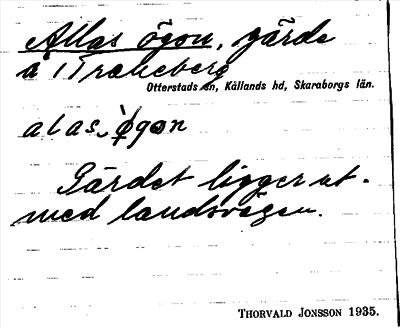 Allas ögon, gärde
å Traheberg
Otterstads sn, Kållands hd, Skaraborgs län.
alas ògon
Gärdet ligger ut-
med landsvägen.
THORVALD JONSSON 1935.